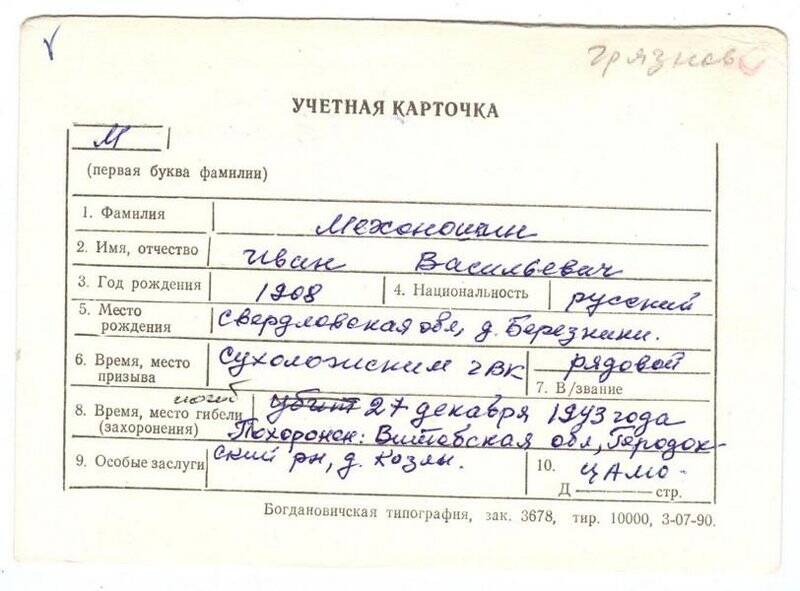 V
Грязнов
УЧЕТНАЯ КАРТОЧКА
М
(первая буква фамилии)
1. Фамилия Мехоношин
2. Имя, отчество Иван Васильевич
3. Год рождения 1908 4. Национальность русский
5. Место рождения Свердловская обл, д. Березники.
6. Время, место призыва Сухоложским ГВК рядовой
7. В/звание
погиб
8. Время, место гибели убит 27 декабря 1943 года
(захоронения) Похоронен: Витебская обл, Городок-
9. Особые заслуги ский рн, д. Козлы. 10. ЦАМО.
Д — стр.
Богдановичская типография, зак. 3678, тир. 10000, 3-07-90.